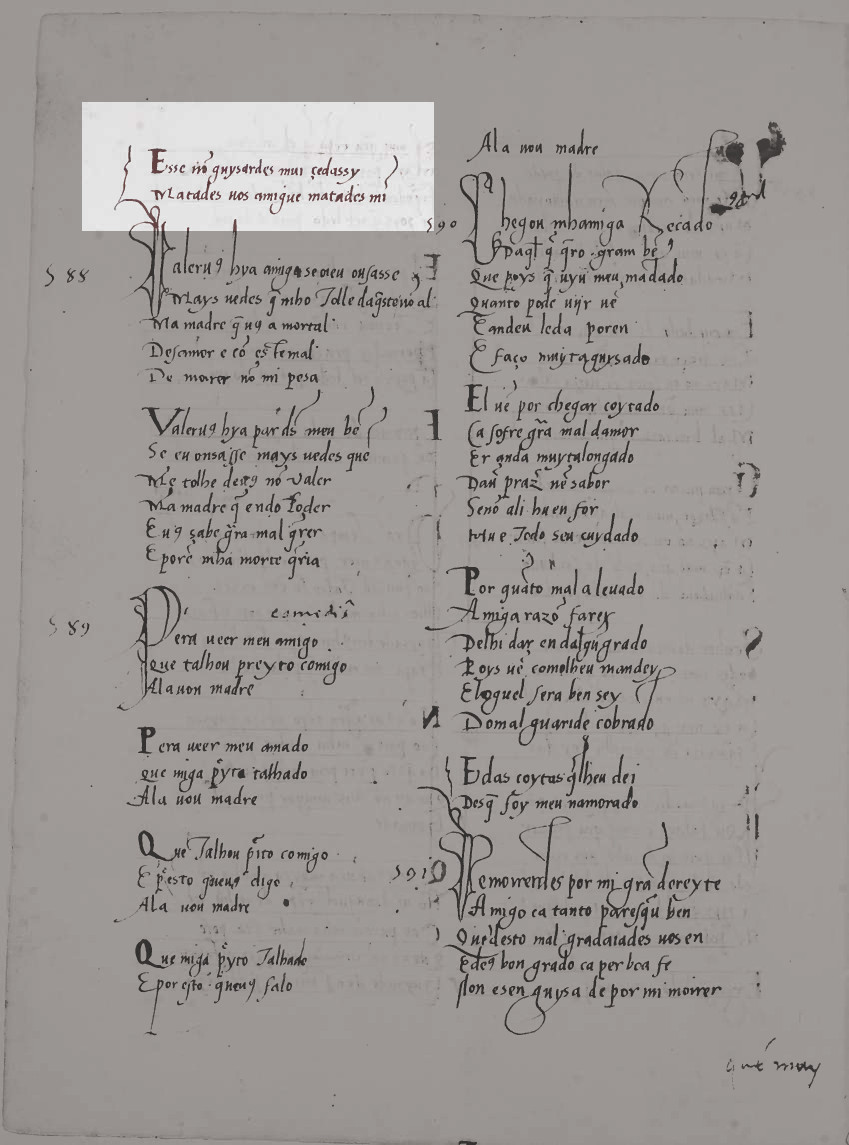 Esse nō guysardes mui çedassy
Matades uos amigue matades mi
588
Valerug hya amiga se meu ousasse
Mays uedes q̄ mho Tolle daq̄sto nō al
Ma madre q̄ ug a mortal
Desamor e cō
De morrer nō mi pesa
Valerug hya par ds meu bē
Se eu ousasse mays uedes que
Me tolhe nō valer
Ma madre q̄ endo Poder
E ug sabe grā mal q̄rer
E porē mha morte q̄ria
589
Pera ueer meu amigo
Que talhou preyto comigo
Ala uou madre
Pera ueer meu amado
Que miga p̄yto talhado
Ala uou madre
Que Talhou p̄ito comigo
E p̄ esto queug digo
Ala uou madre
Que miga p̄yto Talhado
E por esto queug falo
Ala uou madre
590
Chegou mhamiga Recado
Daql̄ q̄ q̄ro gram bē
Que poys q̄ uyu meu madado
Quanto pode uijr uē
E andeu leda poren
E faço muyt aguysado
El uē por chegar coytado
Ca sofre grā mal damor
Er anda muytalongado
Dau praz nē sabor
Senō ali hu en for
Hu e Todo seu cuydado
Por quāto mal a leuado
Amiga razō farey
Delhi daz en dalgū grado
Poys uē comolheu mandey
E loguel sera ben sey
Do mal guaride cobrado
E das coytas q̄ lheu dei
Desq̄ foy meu namorado
591
Se morrerdes por mi grā dereyte
Amigo ca tanto paresq̄u ben
Que desto mal gradaiades uos en
E deg bon grado ca per boa fe
Non e sen guysa de por mi morrer
que moy